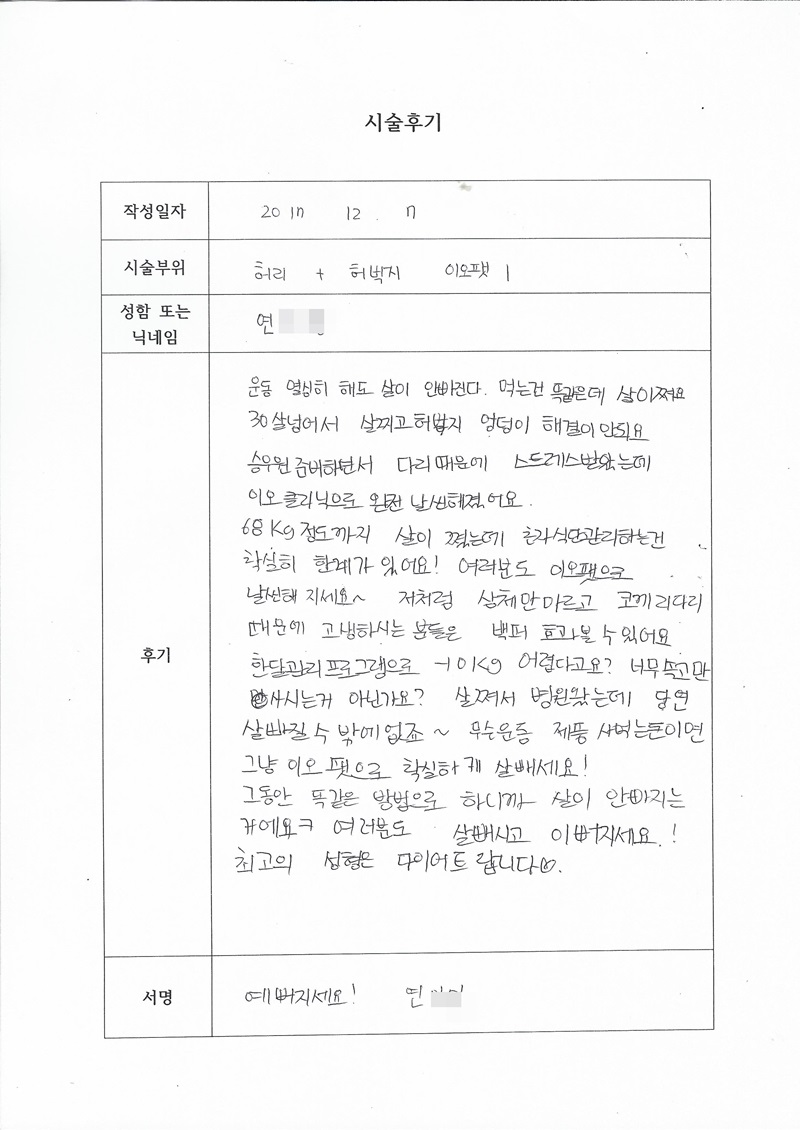 시술후기
작성일자 2017 12. 7
시술부위 허리 + 허벅지 이오팻
성함 또는 연
닉네임
운동 열심히 해도 살이 안빠진다. 먹는건 똑같은데 살이쪄요
30살넘어서 살찌고허벅지 엉덩이 해결이안되요
승무원준비하면서 다리때문에 스트레스받았는데
이오클리닉으로 완전 날씬해졌어요.
68kg정도까지 살이 쪘는데 혼자식단관리하는건
확실히 한계가있어요! 여러분도 이오팻으로
날씬해 지세요~ 저처럼 상체만마르고 코끼리다리
때문에 고생하시는 분들은 백퍼 효과볼수있어요
후기
한달관리프로그램으로 -10kg 어렵다고요? 너무속고만
사시는거 아닌가요? 살쪄서 병원왔는데 당연
살빠질수 밖에없죠~ 무슨운동 제품 사먹는돈이면
그냥 이오팻으로 확실하게 살빼세요!
그동안 똑같은 방법으로 하니까 살이 안빠지는
거에요ㅋ 여러분도 살빼시고 이뻐지세요!
최고의 성형은 다이어트 랍니다♡.
서명 예뻐지세요! 연